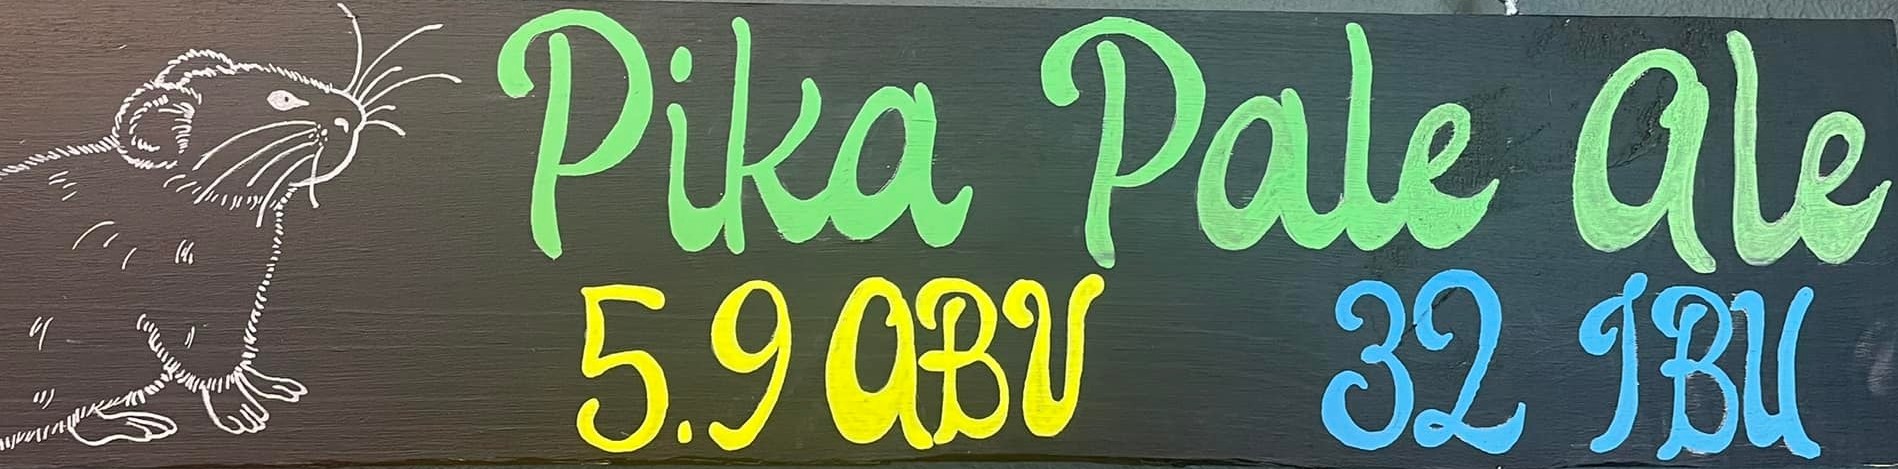 Pika Pale Ale
5.9 ABV 32 IBU